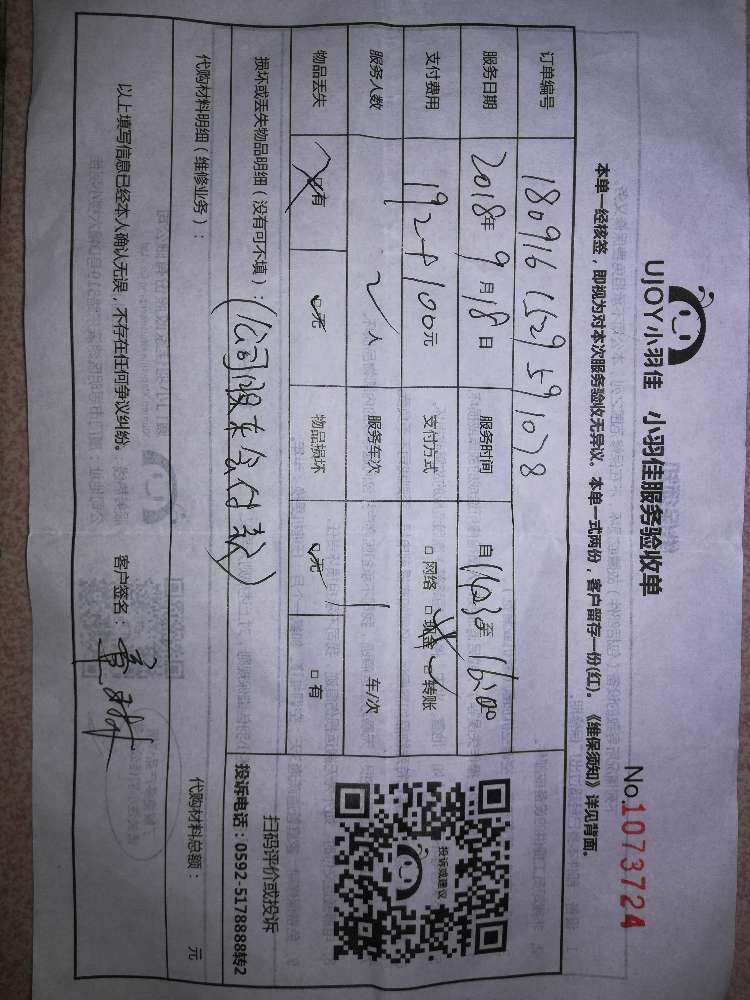 UJOY小羽佳 小羽佳服务验收单
No.1073724
本单一经核签，即视为对本次服务验收无异议。本单一式两份，客户留存一份(红)。《维保须知》详见背面。
订单编号 1809161529591078
服务日期 2018年9月18日 服务时间 自 至 16:00
支付费用 192+100元 支付方式 □ 网络 □ 现金 □ 转账
服务人数 2人 服务车次 1 车/次
物品丢失 □有 □无 物品损坏 □无 □有
损坏或丢失物品明细（没有可不填）：
(公司设東会付款)
代购材料明细（维修业务）： 代购材料总额： 元
以上填写信息已经本人确认无误，不存在任何争议纠纷。 客户签名：
投诉或建议
扫码评价或投诉
投诉电话：0592-5178888转2